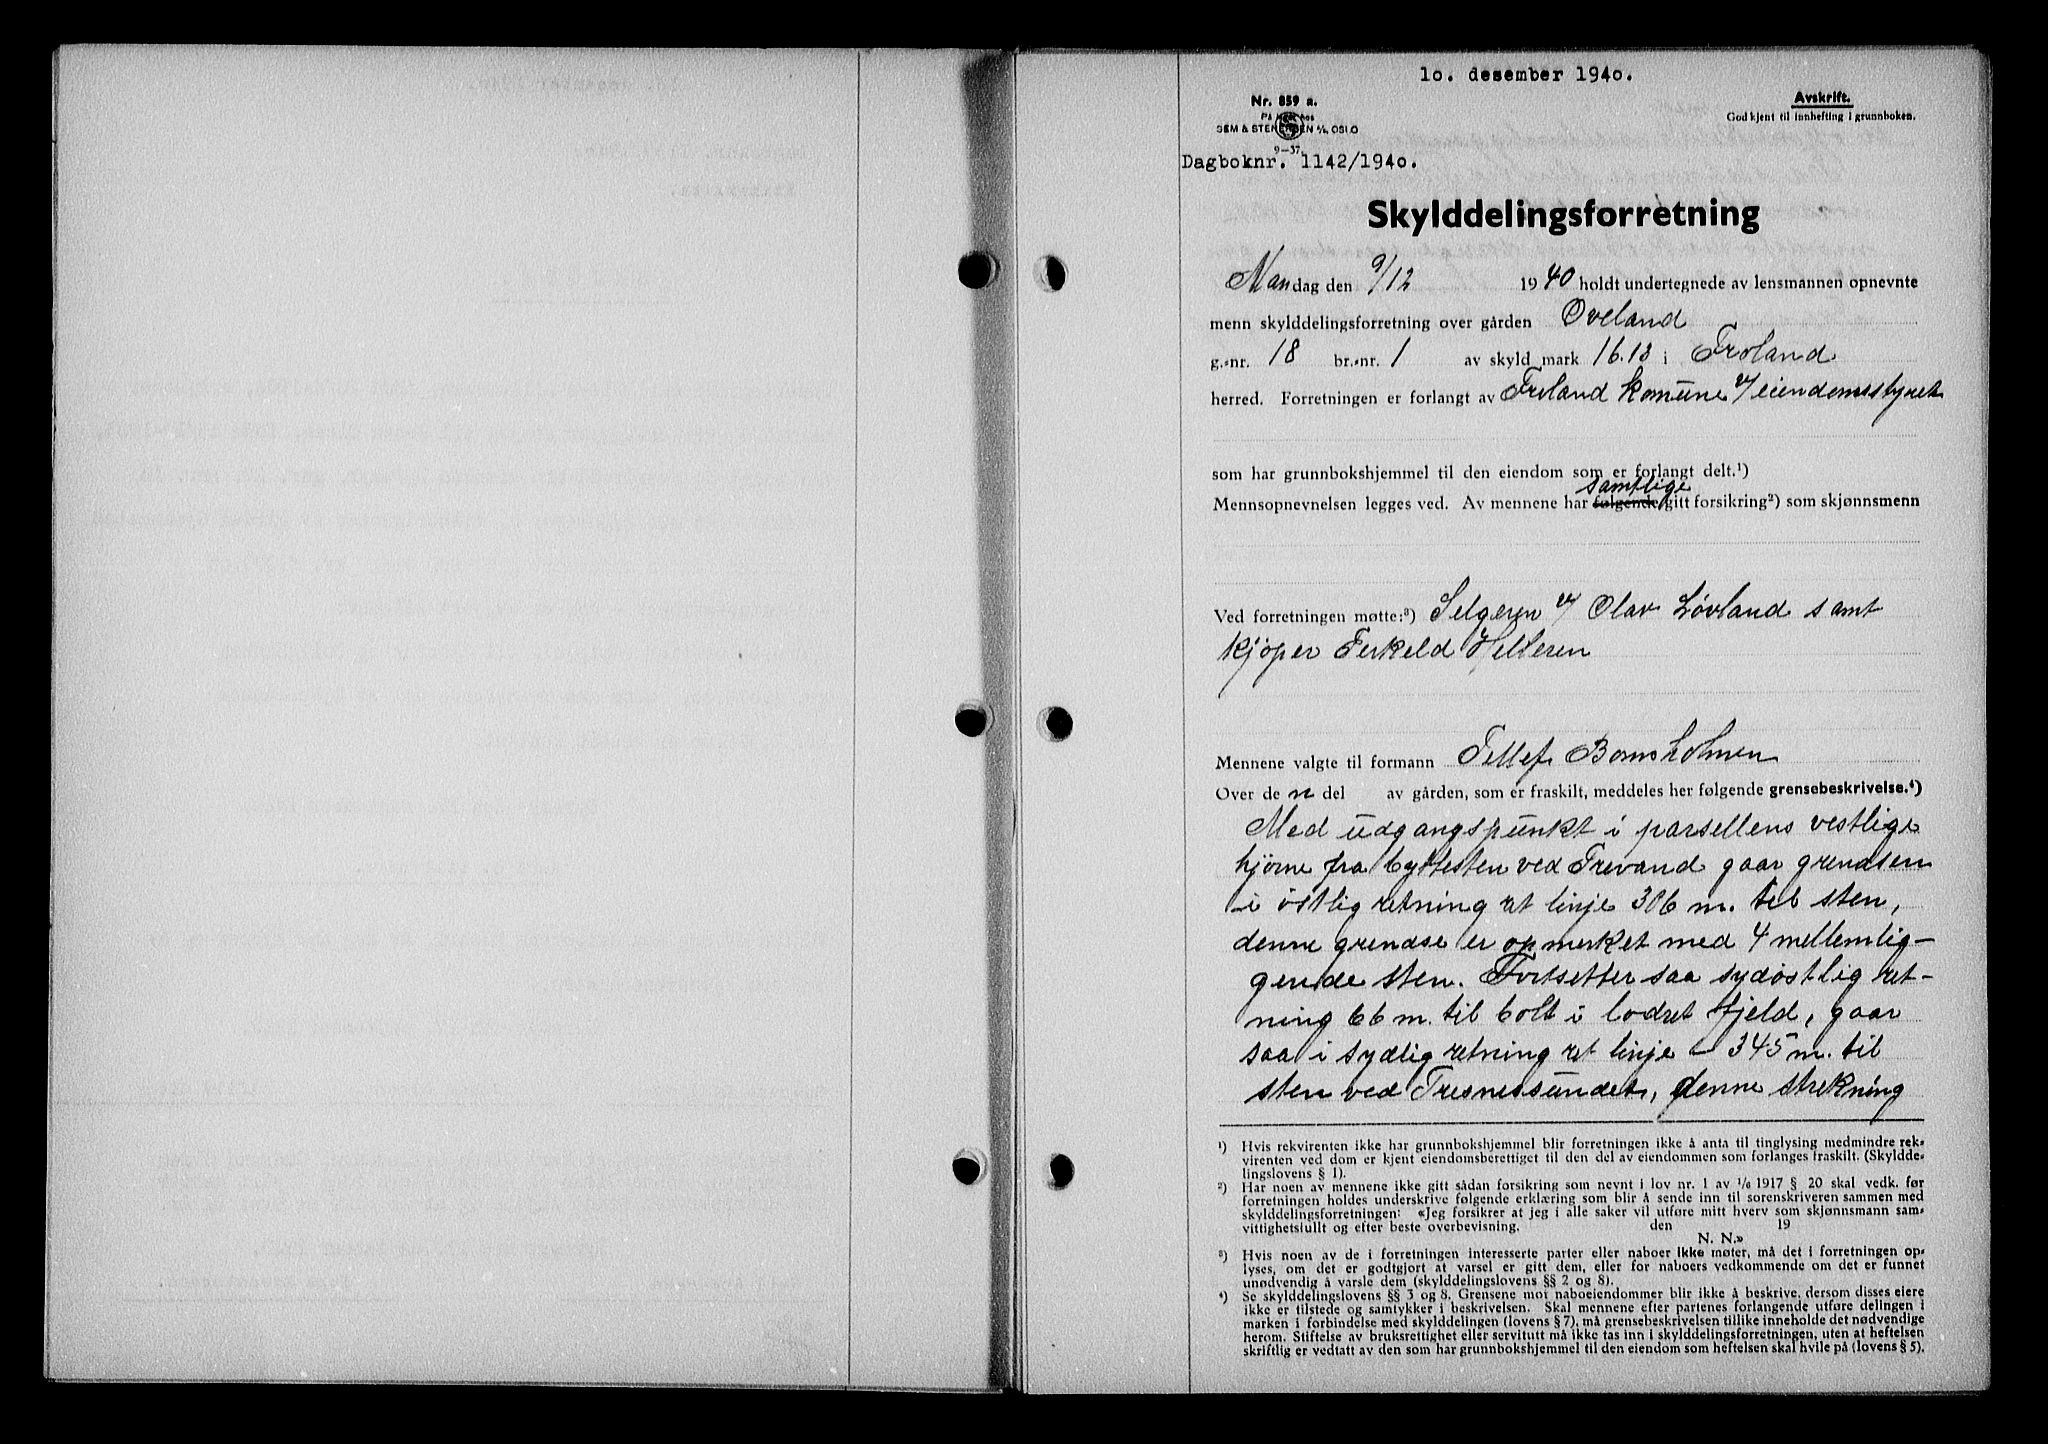 10. desember 1940.
Nr. 859 a.
På lager hos
SEM & STENERSEN A/S, OSLO
9–37
Avskrift.
Godkjent til innhefting i grunnboken.
Dagboknr. 1142/1940.
Skylddelingsforretning
Mandag den 9/12 1940 holdt undertegnede av lensmannen opnevnte
menn skylddelingsforretning over gården Oveland
g.-nr. 18 br.-nr. 1 av skyld mark 16.13 i Froland
herred. Forretningen er forlangt av Froland komune v/ eiendomsstyret
som har grunnbokshjemmel til den eiendom som er forlangt delt.¹)
samtlige
Mennsopnevnelsen legges ved. Av mennene har følgende gitt forsikring²) som skjønnsmenn
Ved forretningen møtte:³) Selgeren v/ Olav Løvland samt
kjøper Terkeld Helleren
Mennene valgte til formann Tellef Bomsholmen
Over de n del av gården, som er fraskilt, meddeles her følgende grensebeskrivelse.⁴)
Med udgangspunkt i parsellens vestlige
hjørne fra byttesten ved Trevand gaar grendsen
i østlig retning ret linje 306 m. til sten,
denne grendse er opmerket med 4 mellemlig–
gende sten. Fortsetter saa sydøstlig ret–
ning 66 m. til bolt i lodret fjeld, gaar
saa i sydlig retning ret linje – 345 m. til
sten ved Tresnessundet, denne strekning
¹) Hvis rekvirenten ikke har grunnbokshjemmel blir forretningen ikke å anta til tinglysing medmindre rek-
virenten ved dom er kjent eiendomsberettiget til den del av eiendommen som forlanges fraskilt. (Skyldde-
lingslovens § 1).
²) Har noen av mennene ikke gitt sådan forsikring som nevnt i lov nr. 1 av 1/6 1917 § 20 skal vedk. før
forretningen holdes underskrive følgende erklæring som blir å sende inn til sorenskriveren sammen med
skylddelingsforretningen: «Jeg forsikrer at jeg i alle saker vil utføre mitt hverv som skjønnsmann sam-
vittighetsfullt og efter beste overbevisning. den 19
N. N.»
³) Hvis noen av de i forretningen interesserte parter eller naboer ikke møter, må det i forretningen op-
lyses, om det er godtgjort at varsel er gitt dem, eller for naboers vedkommende om det er funnet
unødvendig å varsle dem (skylddelingslovens §§ 2 og 8).
⁴) Se skylddelingslovens §§ 3 og 8. Grensene mot naboeiendommer blir ikke å beskrive, dersom disses eiere
ikke er tilstede og samtykker i beskrivelsen. Skal mennene efter partenes forlangende utføre delingen i
marken i forbindelse med skylddelingen (lovens § 7), må grensebeskrivelsen tillike inneholde det nødvendige
herom. Stiftelse av bruksrettighet eller servitutt må ikke tas inn i skylddelingsforretningen, uten at heftelsen
skriftlig er vedtatt av den som har grunnbokshjemmel til den eiendom som heftelsen skal hvile på (lovens § 5).